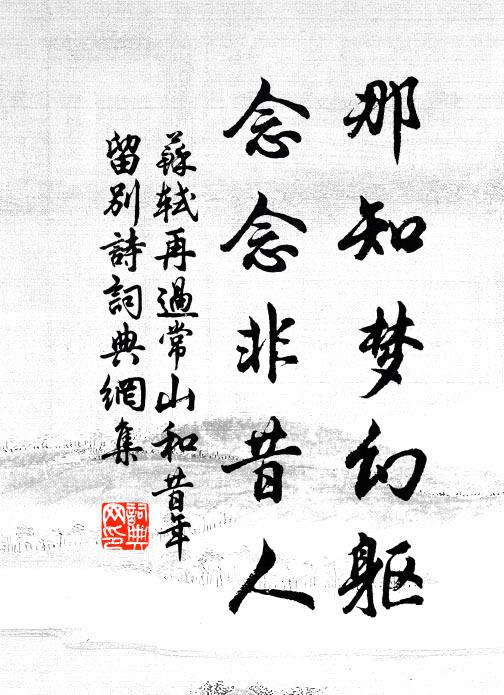 那知梦幻躯
念念非昔人
蘇軾再過常山和昔年
留別詩詞典網集
詞典網印